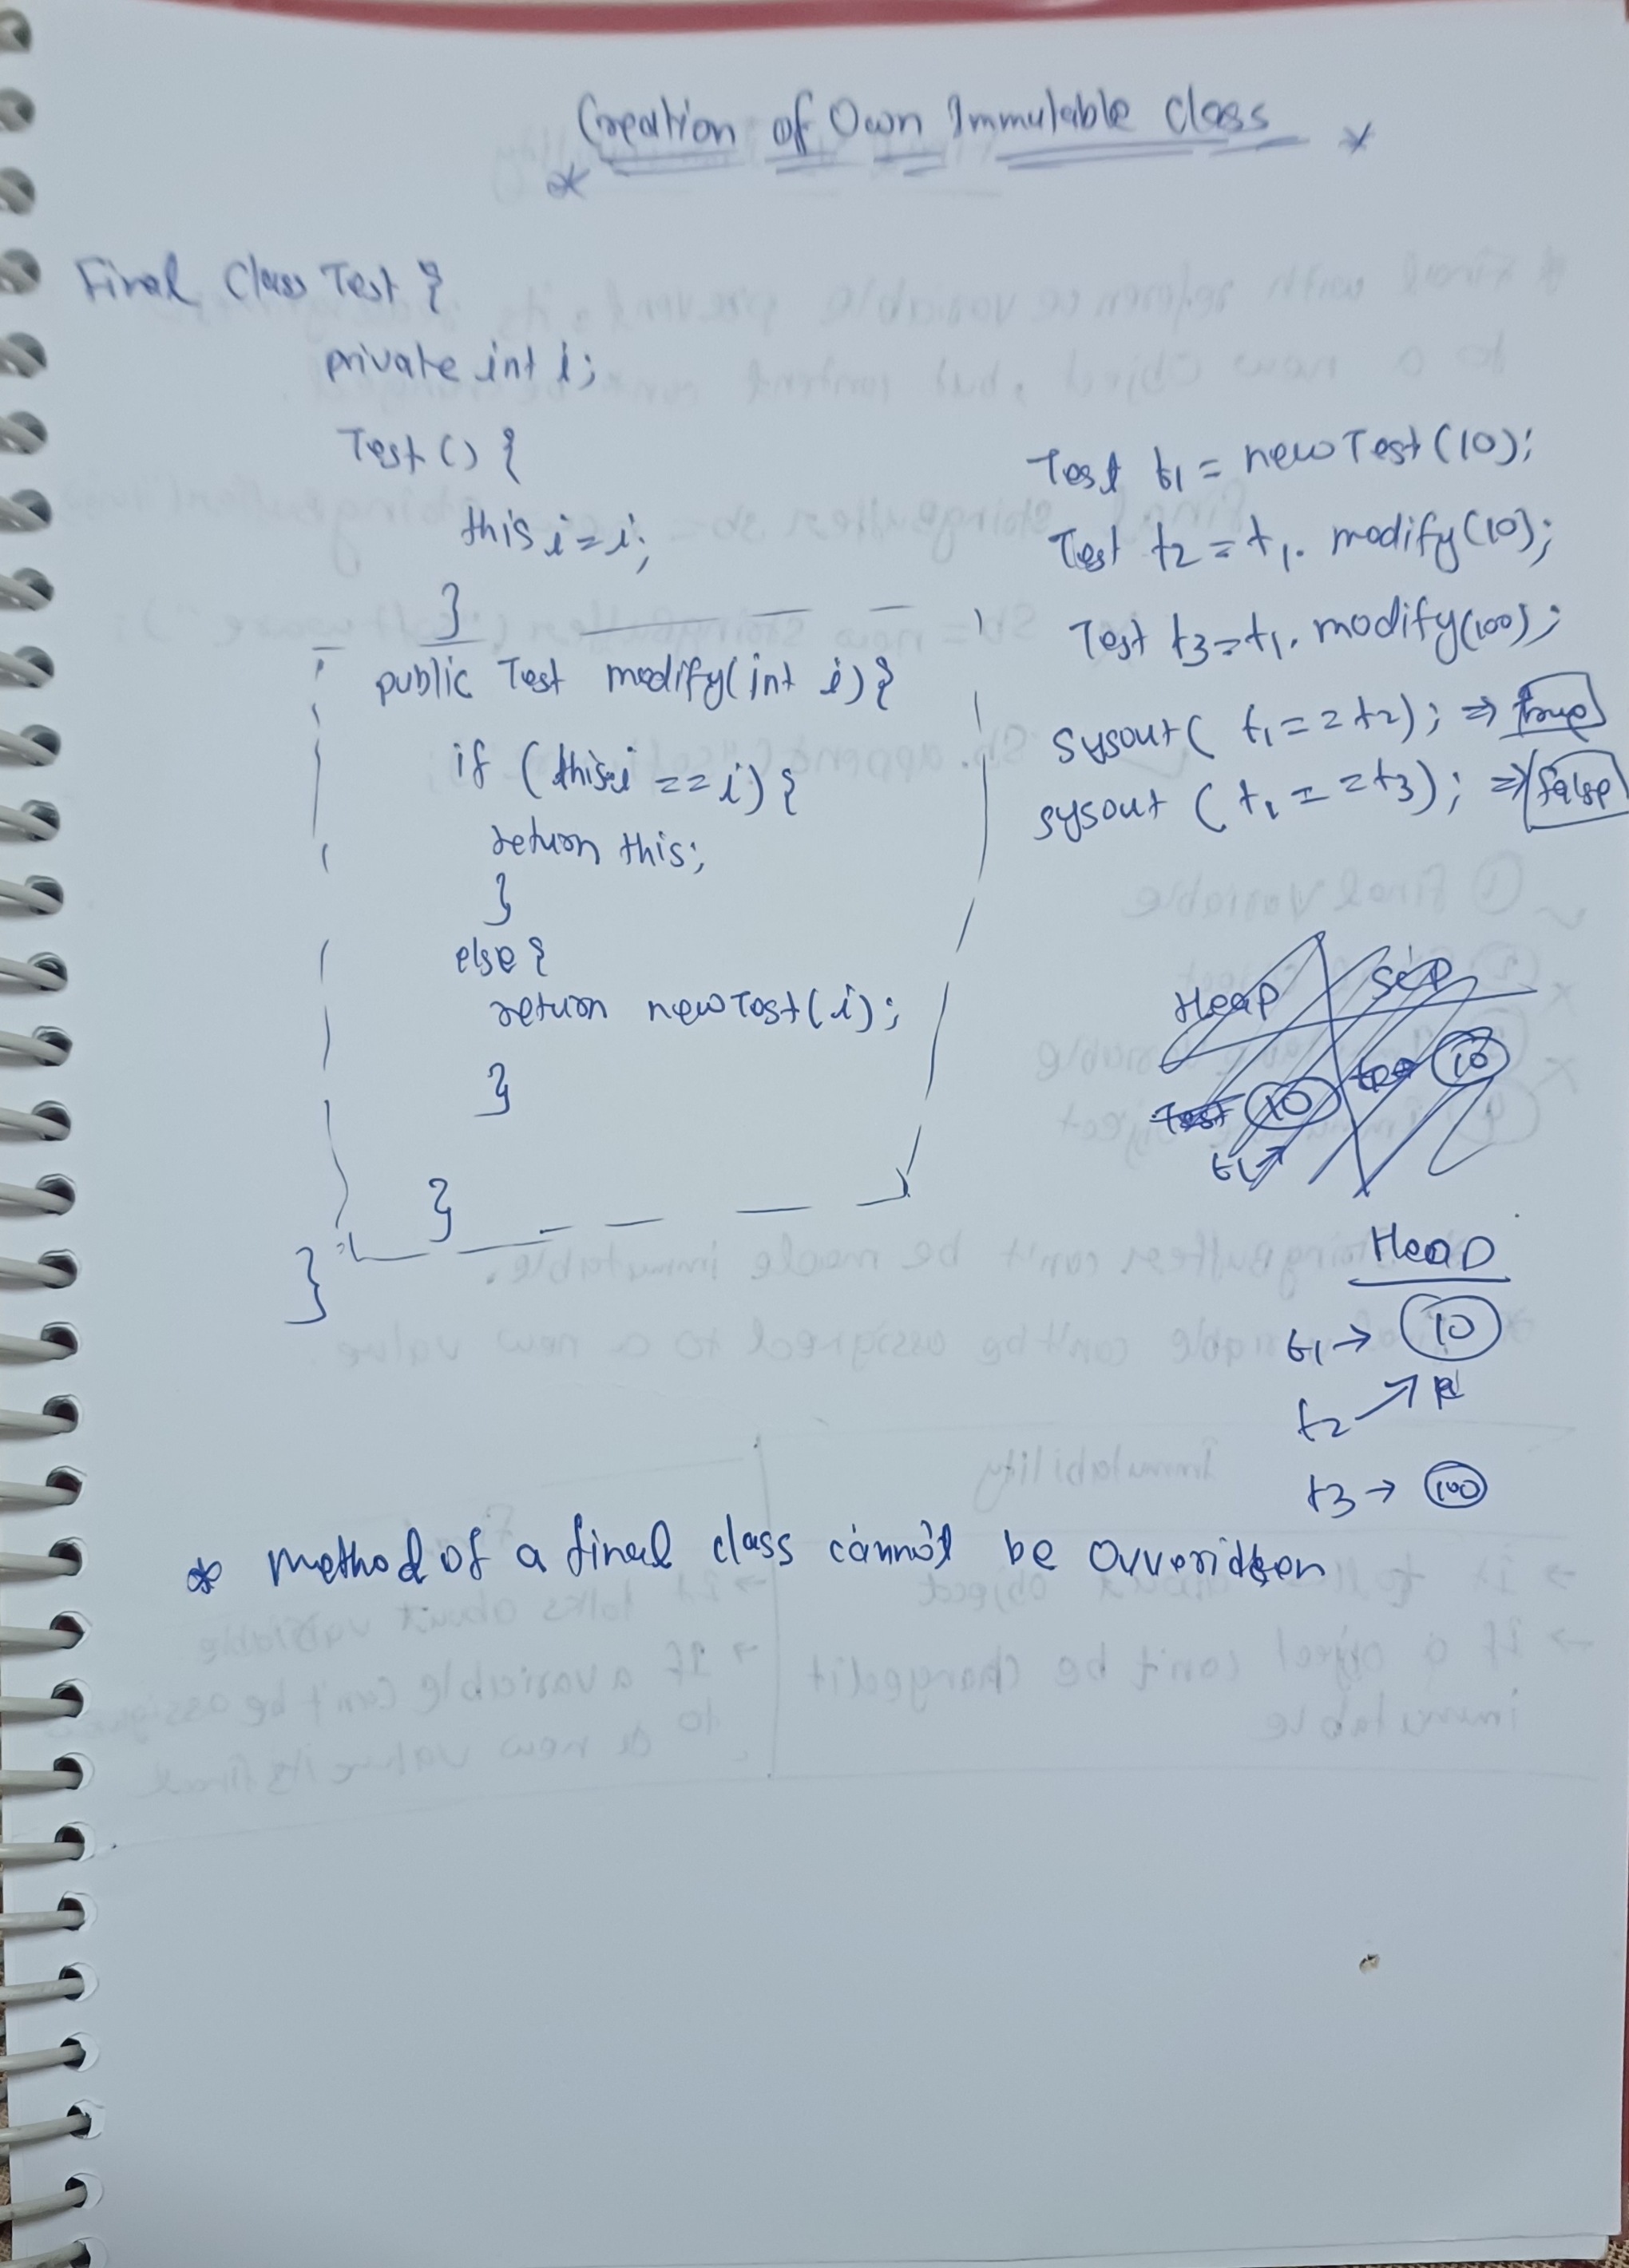 Creation of Own Immutable Class
* *
Final Class Test {
private int i;
Test () {
this i = i;
}
public Test modify(int i) {
if (this.i == i) {
return this;
}
else {
return new Test (i);
}
}
}
Test t1 = new Test (10);
Test t2 = t1. modify(10);
Test t3 = t1. modify(100);
sysout ( t1 == t2); ⇒ true
sysout ( t1 == t3); ⇒ false
Heap SCP
Test 10 10
t1
Heap
t1 → 10
t2 ↗
t3 → 100
* Method of a final class cannot be Ovveridden